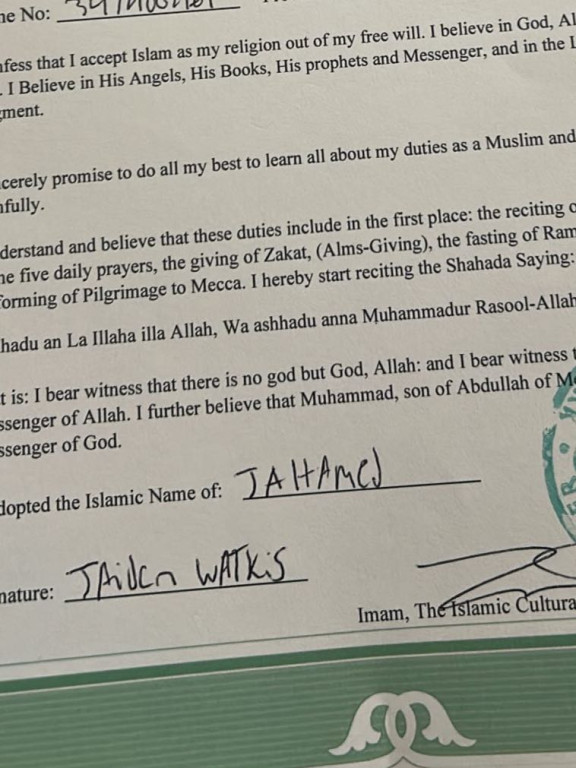 ne No:
nfess that I accept Islam as my religion out of my free will. I believe in God, Al
. I Believe in His Angels, His Books, His prophets and Messenger, and in the L
gment.
ncerely promise to do all my best to learn all about my duties as a Muslim and
nfully.
derstand and believe that these duties include in the first place: the reciting o
he five daily prayers, the giving of Zakat, (Alms-Giving), the fasting of Ram
forming of Pilgrimage to Mecca. I hereby start reciting the Shahada Saying:
hadu an La Illaha illa Allah, Wa ashhadu anna Muhammadur Rasool-Allah
t is: I bear witness that there is no god but God, Allah: and I bear witness t
ssenger of Allah. I further believe that Muhammad, son of Abdullah of M
ssenger of God.
dopted the Islamic Name of: JAHAMED
nature: JAiden WATKiS
Imam, The Islamic Cultura